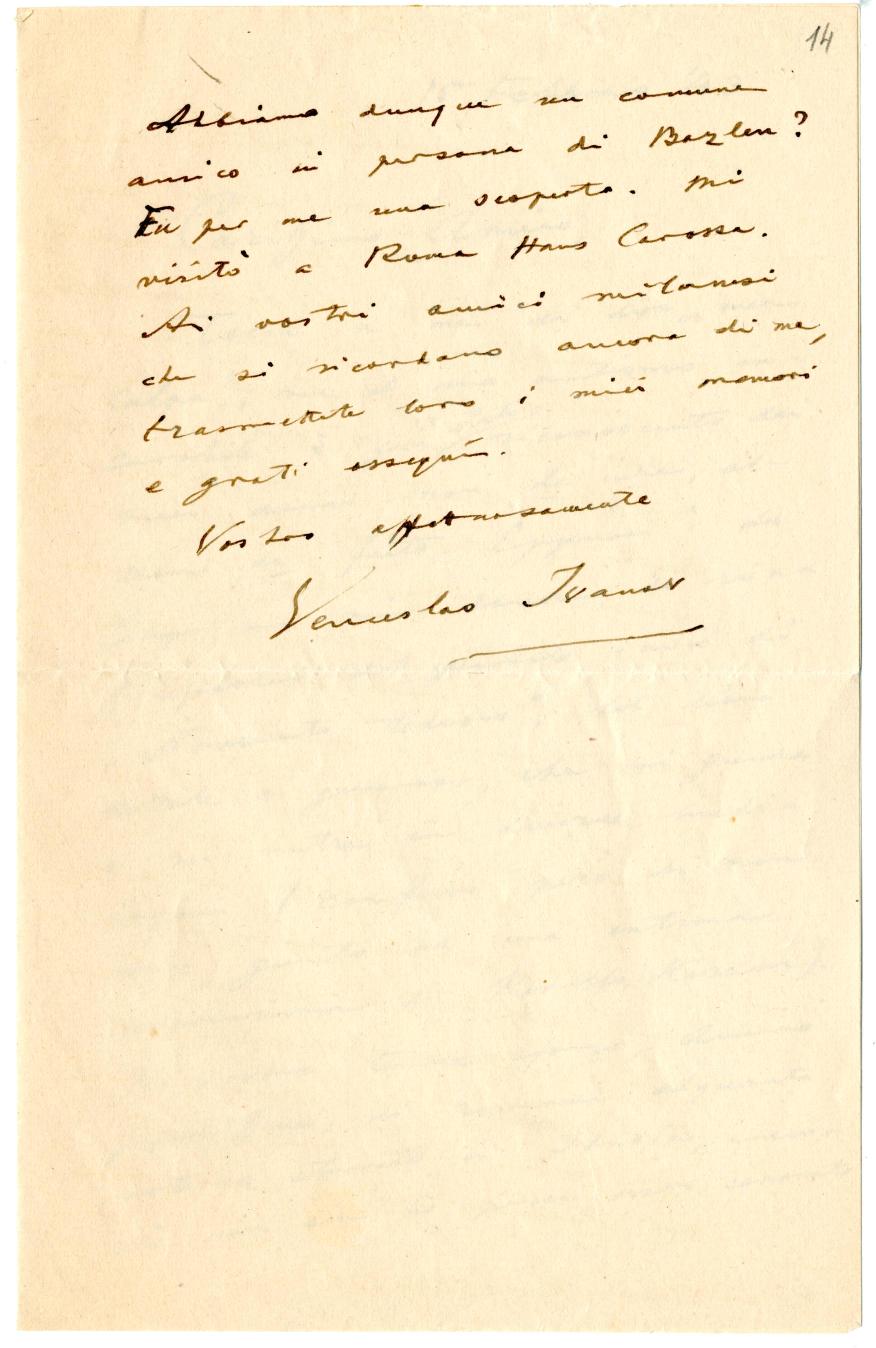 14
Abbiamo dunque un comune
amico in persona di Bazlen?
Fu per me una scoperta. Mi
visitò a Roma Hans Carossa.
Ai vostri amici milanesi
che si ricordano ancora di me,
trasmettete loro i miei memori
e grati ossequii.
Vostro affettuosamente
Venceslao Ivanov